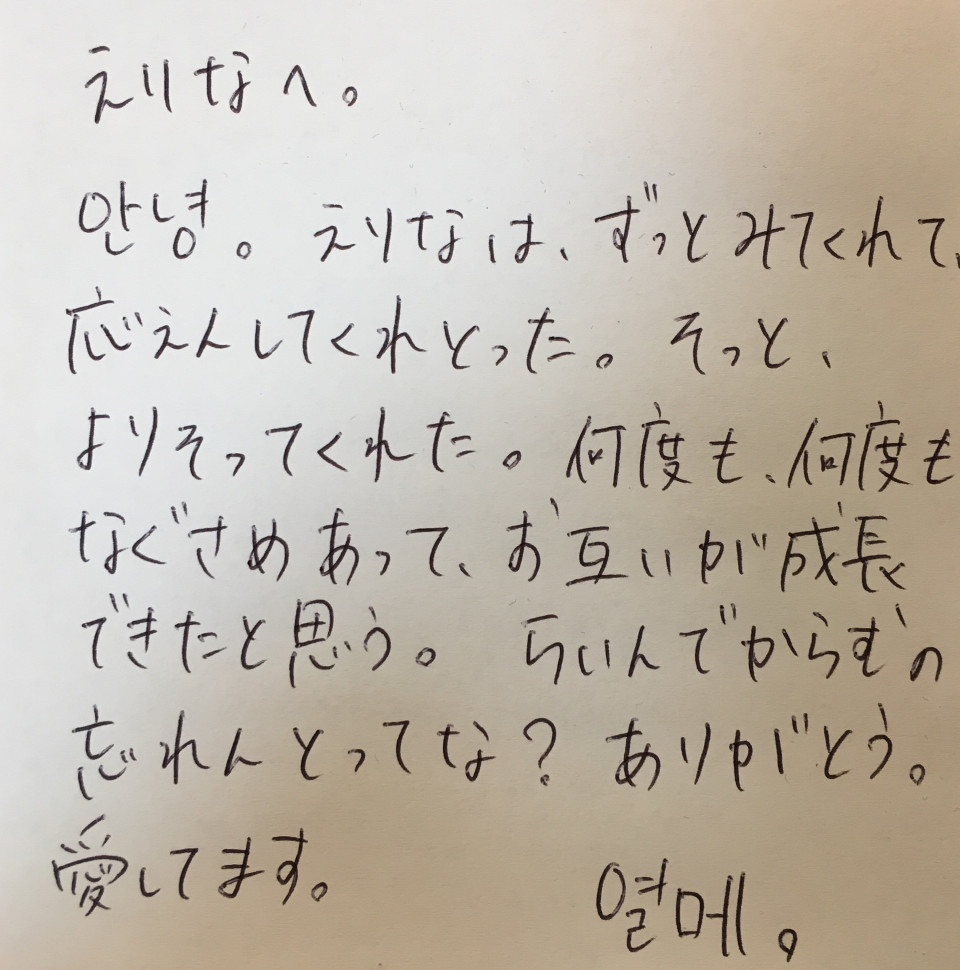 えりなへ。
안녕。えりなは、ずっとみてくれて、
応えんしてくれとった。そっと、
よりそってくれた。何度も、何度も
なぐさめあって、お互いが成長
できたと思う。らいんでからむの
忘れんとってな?ありがとう。
愛してます。 열메。